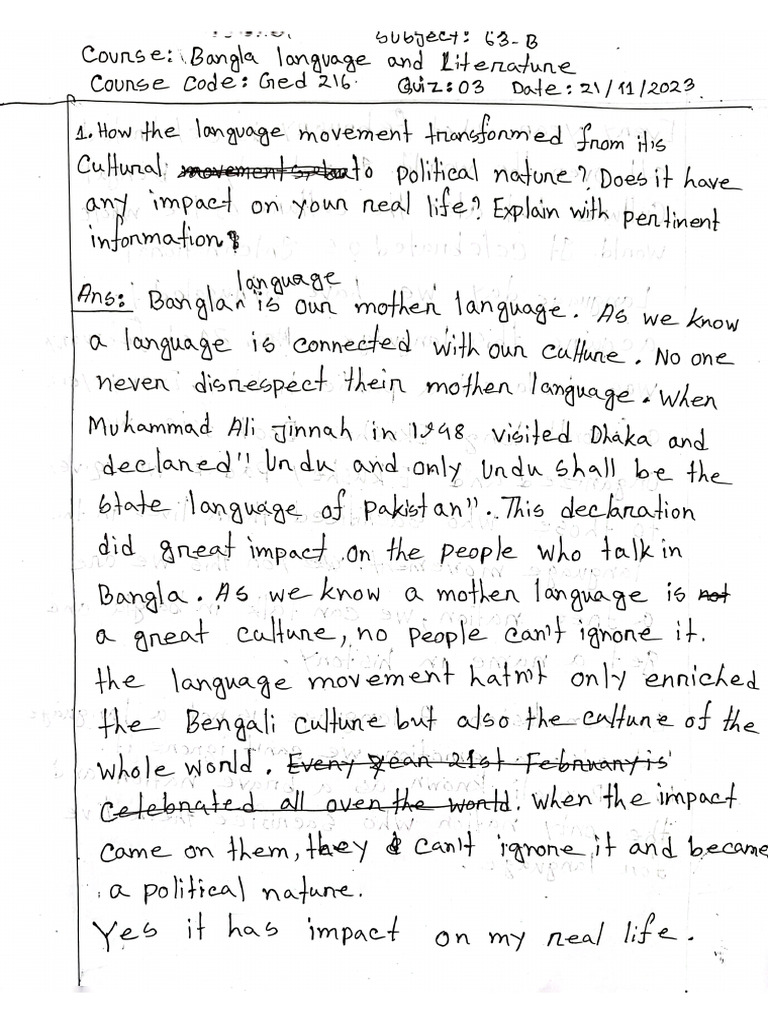 Subject: 63-B
Course: Bangla language and Literature
Course Code: Ged 216 Quiz: 03 Date: 21/11/2023
1. How the language movement transformed from it's
Cultural to political nature? Does it have
any impact on your real life? Explain with pertinent
information?
language
Ans: Bangla is our mother language. As we know
a language is connected with our culture. No one
never disrespect their mother language. When
Muhammad Ali Jinnah in 1948 visited Dhaka and
declared "Urdu and only Urdu shall be the
state language of Pakistan". This declaration
did great impact on the people who talk in
Bangla. As we know a mother language is not
a great culture, no people can't ignore it.
the language movement hatn't only enriched
the Bengali culture but also the culture of the
whole world. Every year 21st February is
Celebrated all over the world. when the impact
came on them, they can't ignore it and became
a political nature.
Yes it has impact on my real life.